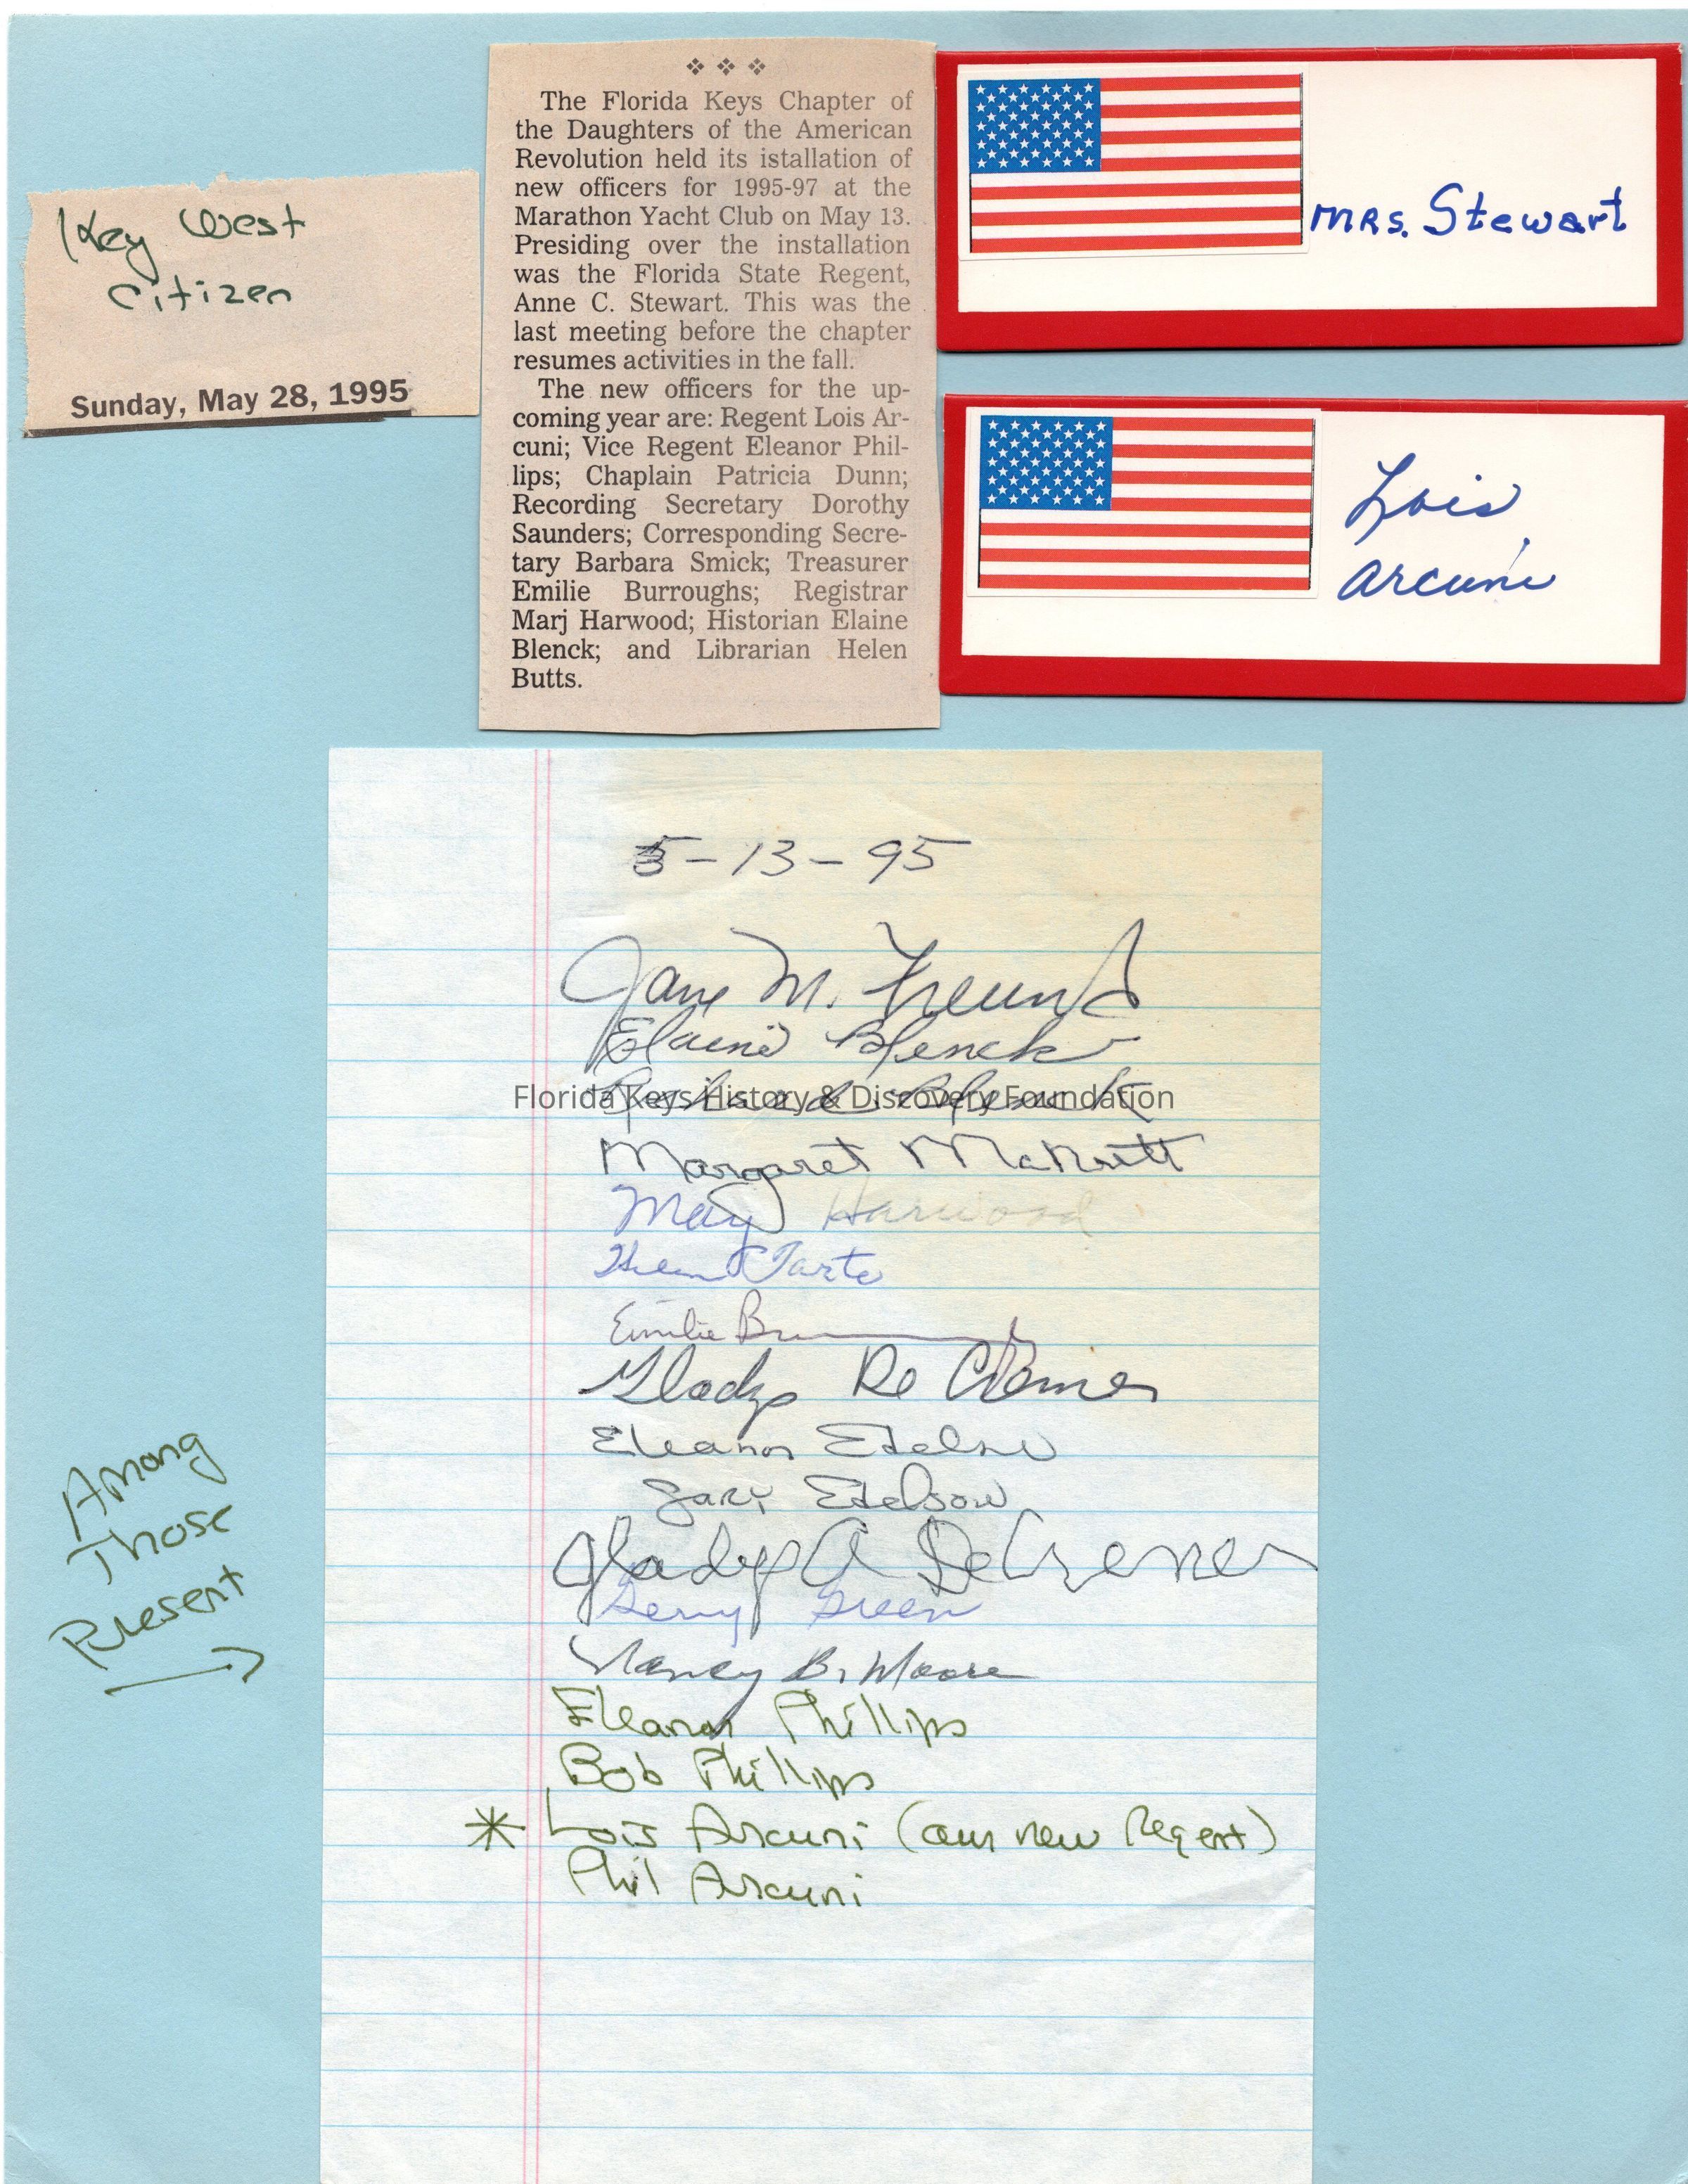 Key West
Citizen
Sunday, May 28, 1995
The Florida Keys Chapter of
the Daughters of the American
Revolution held its istallation of
new officers for 1995-97 at the
Marathon Yacht Club on May 13.
Presiding over the installation
was the Florida State Regent,
Anne C. Stewart. This was the
last meeting before the chapter
resumes activities in the fall.
The new officers for the up-
coming year are: Regent Lois Ar-
cuni; Vice Regent Eleanor Phil-
lips; Chaplain Patricia Dunn;
Recording Secretary Dorothy
Saunders; Corresponding Secre-
tary Barbara Smick; Treasurer
Emilie Burroughs; Registrar
Marj Harwood; Historian Elaine
Blenck; and Librarian Helen
Butts.
Mrs. Stewart
Lois
Arcuni
5-13-95
Jane M. Freund
Elaine Blenck
Blenck
Florida Keys History & Discovery Foundation
Margaret McNutt
Harwood
Tarte
Emilie
Gladys De Cremer
Eleanor Edelson
Gary Edelson
Gladys A DeCremer
Gerry Green
Nancy B. Moore
Eleanor Phillips
Bob Phillips
* Lois Arcuni (our new Regent)
Phil Arcuni
Among
Those
Present
→